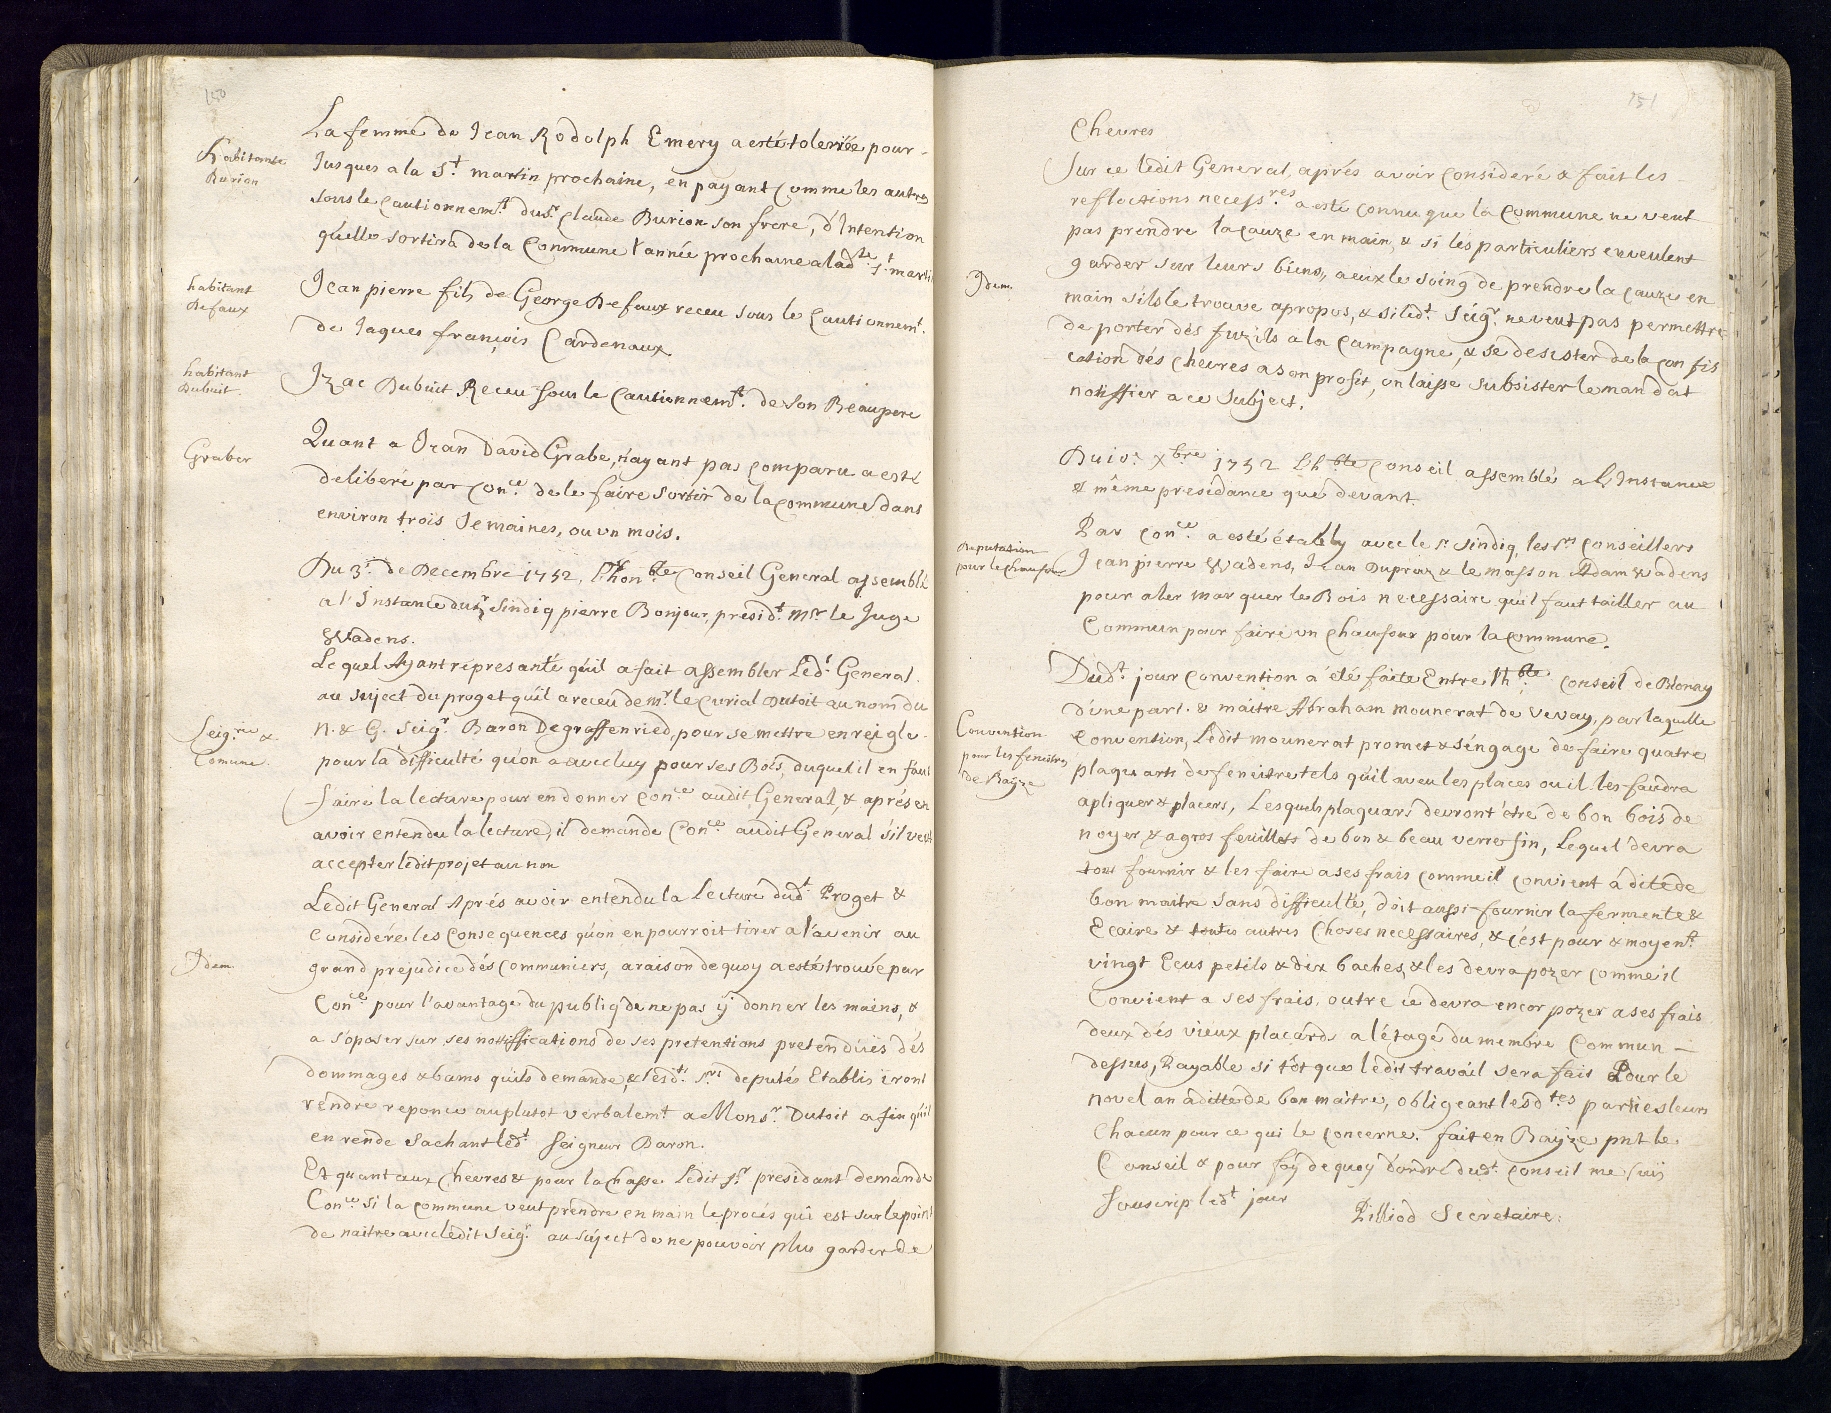 150
La femme de Jean Rodolph Emery a esté tolerée pour-
Habitante
Burion
Jusques a la St. martin prochaine, en payant comme les autres
sous le cautionnemt. du sr. Claude Burion son frere, d'Intention
quelle sortira de la Commune l'année prochaine a lad.te St. marti
habitant
Defaux
Jean pierre fils de George Defaux receu sous le Cautionnemt.
de Jaques françois Cardenaux
habitant
Dubuit.
Izac Dubuit Receu sous le Cautionnemt. de son Beaupere
Graber
Quant a Jean David Grabe, n'ayant pas comparu a esté
deliberé par Con.ce de le faire sortir de la Commune dans
environ trois Semaines, ou un mois.
Du 3e. de Decembre 1752, l'hon.ble Conseil General assemblé
a l'Instance du sr. Sindiq pierre Bonjour, presidt. Mr. le Juge
Wadens.
Le quel Ayant represanté quil a fait assembler Ledt. General
au suject du proget quil a receu de mr. le Curial Dutoit au nom du
Seig.rie &
Comune.
N. & G. Seigr. Baron Degraffenried, pour se mettre en reigle
pour la difficulté qu'on a avec luy pour ses Bois, duquel il en faut
faire la lecture pour en donner Con.ce audit General, & aprés en
avoir entendu la lecture, il demande Con.ce audit General s'il veut
accepter ledit projet au non
Ledit General Aprés avoir entendu la Lecture dudt. Proget &
Consideré les Consequences qu'on en pourroit tirer a l'avenir au
Idem
grand prejudice dés Communiers, a raison de quoy a esté trouvé par
Con.ce pour l'avantage du publiq de ne pas ÿ donner les mains, &
a s'oposer sur ses nottiffications de ses pretentions pretendües dés
dommages & bams quils demande, & lesdts. Srs. deputés Etablis iront
rendre reponce au plutot verbalemt. a Monsr. Dutoit afin quil
en rende sachant ledt. Seigneur Baron.
Et quant aux Chevres & pour la Chasse Ledit Sr. presidant demande
Con.ce si la Commune veut prendre en main le procés qui est sur le point
de naitre avec ledit Seigr. au sujet de ne pouvoir plus garder de
151
Chevres
Sur ce ledit General, aprés avoir consideré & fait les
reflections necess.res a esté connu que la Commune ne veut
pas prendre la cauze en main, & si les particuliers en veulent
Idem
garder sur leurs biens, a eux le soing de prendre la cauze en
main s'ils le trouve apropos, & si ledt. Seigr. ne veut pas permettre
de porter dés fuzils a la Campagne, & se desister de la Con fis
cation dés Chevres a son profit, on laisse subsister le mandat
notiffier a ce Subject.
Du 10e. Xbre 1752 L'h.ble Conseil assemblé a L'Instance
& même presidance que devant
Deputation
pour le Chaufour
Par Con.ce a esté établÿ avec le sr. Sindiq, les srs. Conseillers
Jean pierre Wadens, Jean Dupraz & le masson Adam Wadens
pour aler marquer le Bois necessaire quil faut tailler au
Commun pour faire un Chaufour pour la Commune.
Dudt. jour Convention a été faite Entre l'h.ble Conseil de Blonay
d'une part. & maitre Abraham mounerat de Vevay, par laquelle
Convention
pour les fenestres
de Bayze
Convention, Ledit mounerat promet & s'éngage de faire quatre
plaquarts de feneistre tels qu'il a veu les places ou il les faudra
apliquer & placers, Lesquels plaquars devront être de bon bois de
noyer & a gros feuillets de bon & beau verre fin, Lequel devra
tous fournir & les faire a ses frais comme il convient a dite de
bon maitre sans difficulté, doit aussi fournir la fermente &
Ecaire & toutes autres Choses necessaires, & c'est pour & moyent.
vingt Ecus petits & dix baches, & les devra pozer comme il
Convient a ses frais, outre ce devra encor pozer a ses frais
deux dés vieux placards a l'étage du membre Commun -
dessus, Payable si tôt que ledit travail sera fait Pour le
novel an a ditte de bon maitre, obligeant lesd.tes parties leurs
Chacun pour ce qui le Concerne. fait en Bayze pnt le
Conseil & pour foÿ de quoy d'ordre dudt. Conseil me suis
souscrip ledt. jour
Pilliod Secretaire.